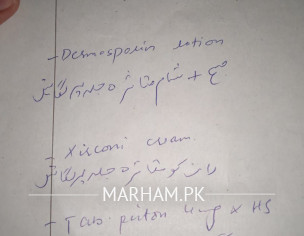 - Dermosporin lotion
صبح + شام متاثرہ جلد پر لگائیں
- Xisconi cream
رات کو متاثرہ جلد پر لگائیں
MARHAM.PK
- Tab. 4mg x HS